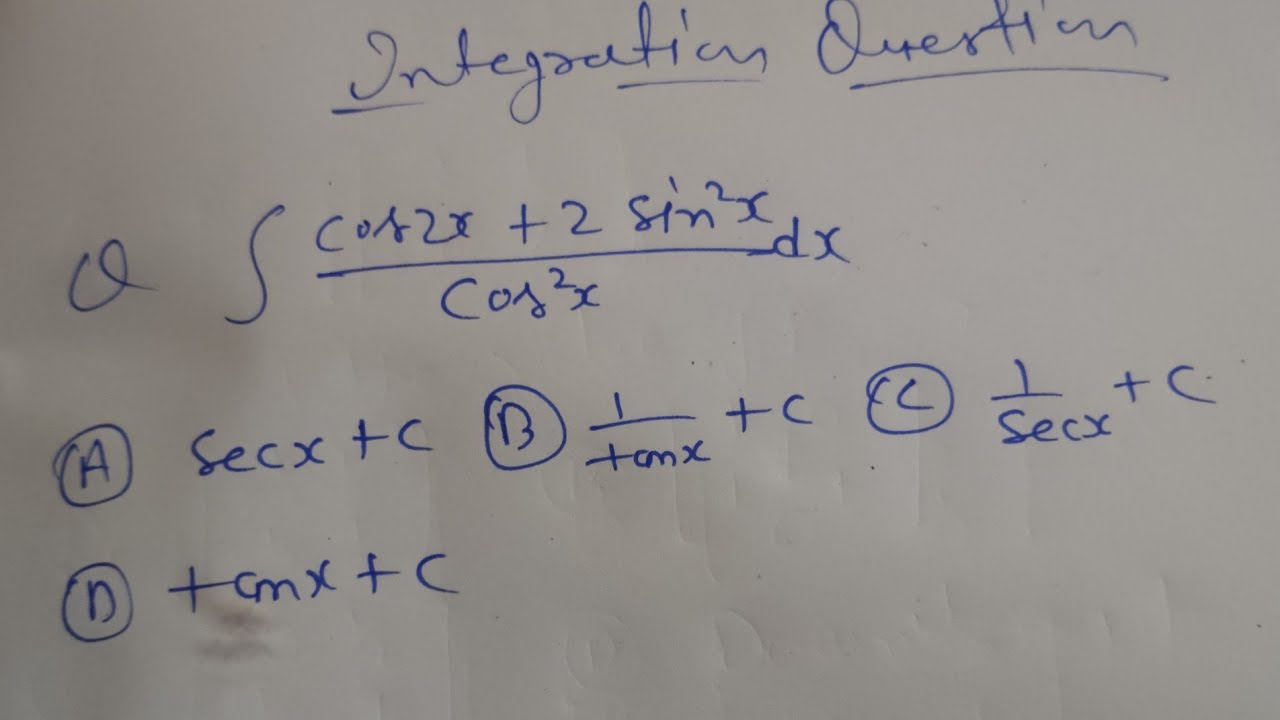 Integration Question
Q ∫ cos2x + 2 sin²x / cos²x dx
(A) secx + c (B) 1/tanx + c (C) 1/secx + c
(D) tanx + c